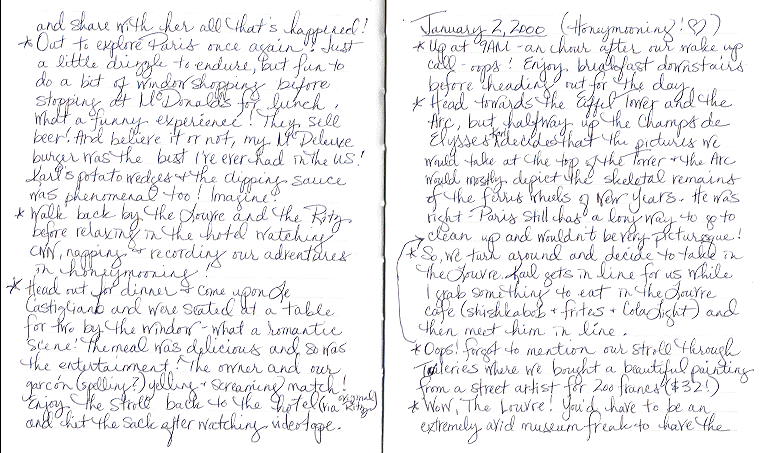 and share with her all that's happened!
* Out to explore Paris once again! Just
a little drizzle to endure, but fun to
do a bit of window shopping before
stopping at McDonalds for lunch.
What a funny experience! They sell
beer! And believe it or not, my McDeluxe
burger was the best I've ever had in the US!
Karl's potato wedges + the dipping sauce
was phenomenal too! Imagine!
* Walk back by the Louvre and the Ritz
before relaxing in the hotel watching
CNN, napping, + recording our adventures
in honeymooning!
* Head out for dinner + come upon Le
Castiglione and were seated at a table
for two by the window - what a romantic
scene! The meal was delicious and so was
the entertainment! The owner and our
garcón (spelling?) yelling + screaming match!
Enjoy the stroll back to the hotel (via original Ritz)
and hit the sack after watching videotape.
January 2, 2000 (Honeymooning! ♡)
* Up at 9AM - an hour after our wake up
call - oops! Enjoy breakfast downstairs
before heading out for the day.
* Head towards the Eiffel Tower and the
Arc, but halfway up the Champs de
Elysses Karl decides that the pictures we
would take at the top of the Tower + the Arc
would mostly depict the skeletal remains
of the ferris wheels of New Years. He was
right - Paris still has a long way to go to
clean up and wouldn't be very picturesque!
* So, we turn around and decide to take in
the Louvre. Karl gets in line for us while
I grab something to eat in the Louvre
cafe (shishkabob + frites + Cola Light) and
then meet him in line.
* Oops! forgot to mention our stroll through
Tuleries where we bought a beautiful painting
from a street artist for 200 francs ($32!)
* Wow, The Louvre! You'd have to be an
extremely avid museum freak to have the